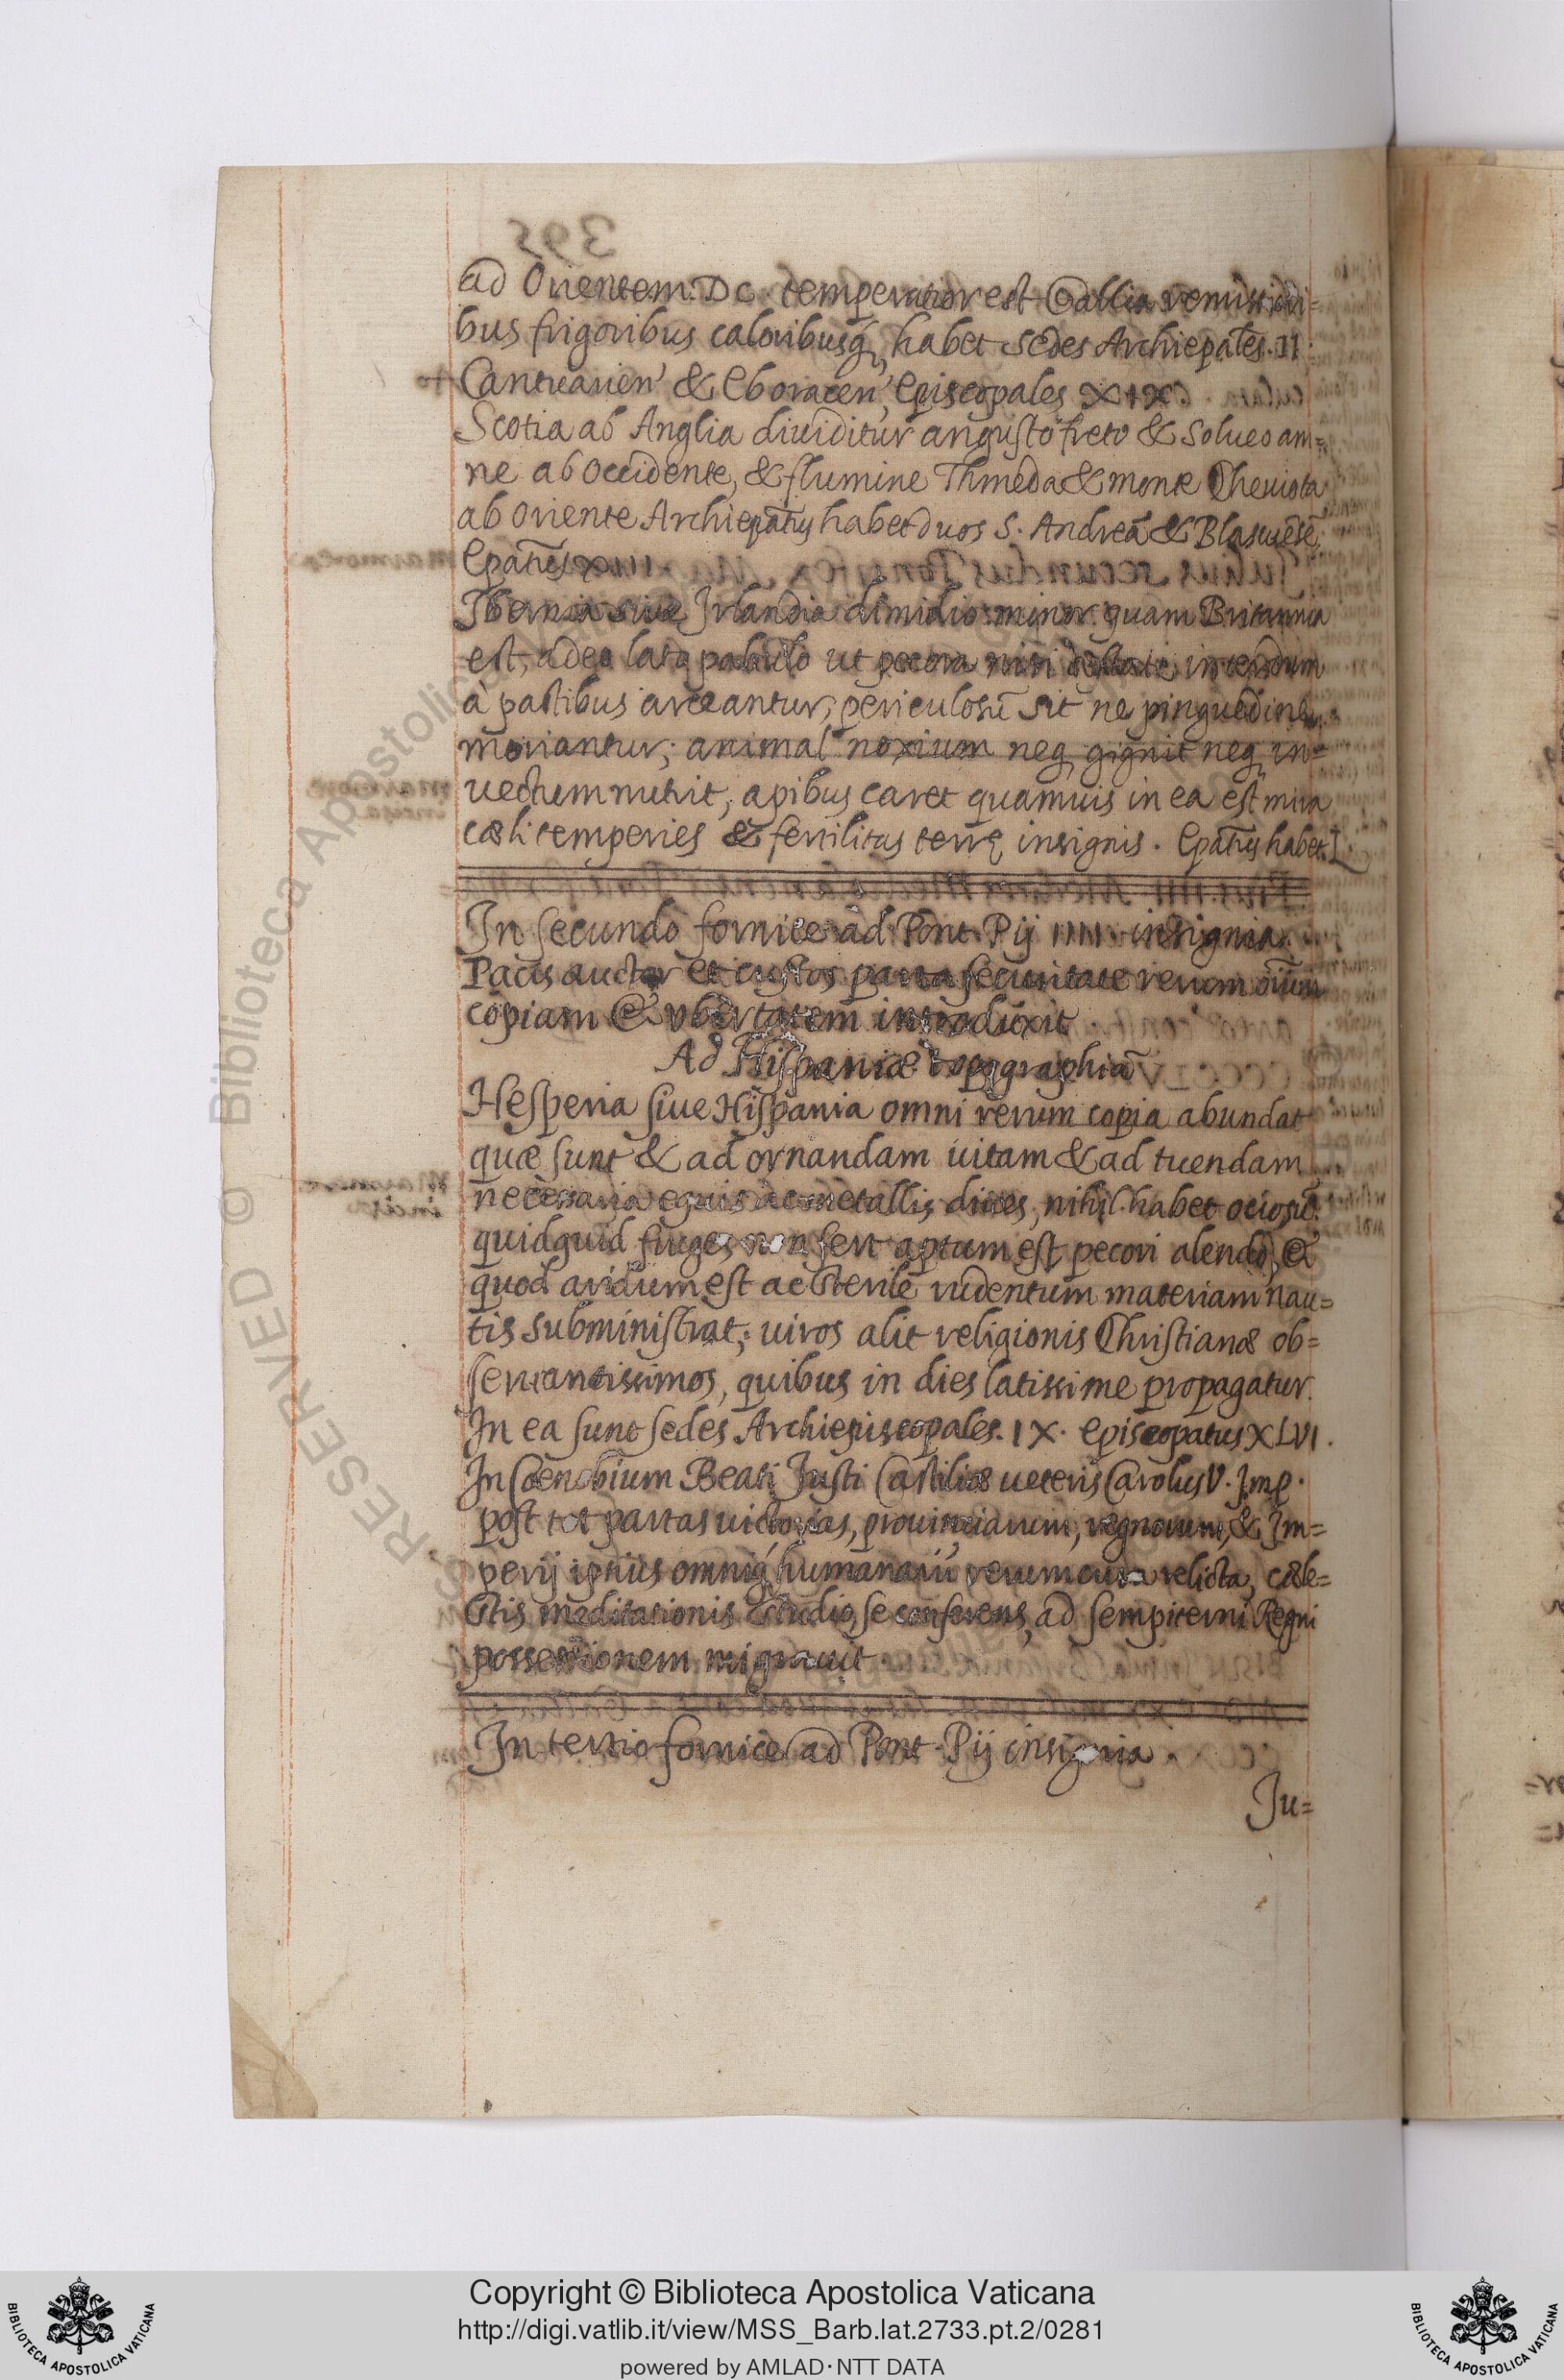 ad Orientem. DC. temperatior est Gallia remissiori=
bus frigoribus caloribusq, habet Sedes Archiepales. II
Cantuarien' & Eboracen' Episcopales XIX
Scotia ab Anglia diuiditur angusto freto & Solueo am=
ne ab Occidente, & flumine Thmeda & monte Cheuiota
ab Oriente Archiepatus habet duos S. Andreā & Blascuēsē
Epatus XIIII
Ibernia siue Irlandia dimidio minor quam Britannia
est, adeo lato pabulo ut pecora nisi interdum
à pastibus arceantur, periculosū sit ne pinguedine
moriantur; animal noxium neq gignit neq in=
uectum nutrit, apibus caret quamuis in ea est mira
cæli temperies & fertilitas terrę insignis. Epatus habet L
In secundo fornice ad Pont. Pij IIII insignia.
Pacis auctor et custos parta securitate rerum oīum
copiam & vbertatem introduxit
Ad Hispaniæ topographiā
Hesperia siue Hispania omni rerum copia abundat
quæ sunt & ad ornandam uitam & ad tuendam
necessaria equis ac metallis diues, nihil habet ociosū.
quidquid fruges non fert aptum est pecori alendo, &
quod aridum est ac sterile rudentum materiam nau=
tis subministrat; uiros alit religionis Christianæ ob=
seruantissimos, quibus in dies latissime propagatur.
In ea sunt sedes Archiepiscopales. IX. episcopatus XLVI.
In Coenobium Beati Justi Castiliæ ueteris Carolus V. Imp.
post tot partas uictorias, prouinciarum, regnorum, & Im=
perij ipsius omniq, humanarū rerum cura relicta, cæle=
stis meditationis studio se conferens, ad sempiterni Regni
possessionem migrauit
In tertio fornice ad Pont. Pij insignia.
Ju=
RESERVED © Biblioteca Apostolica
Copyright © Biblioteca Apostolica Vaticana
http://digi.vatlib.it/view/MSS_Barb.lat.2733.pt.2/0281
powered by AMLAD·NTT DATA
BIBLIOTECA APOSTOLICA VATICANA
BIBLIOTECA APOSTOLICA VATICANA